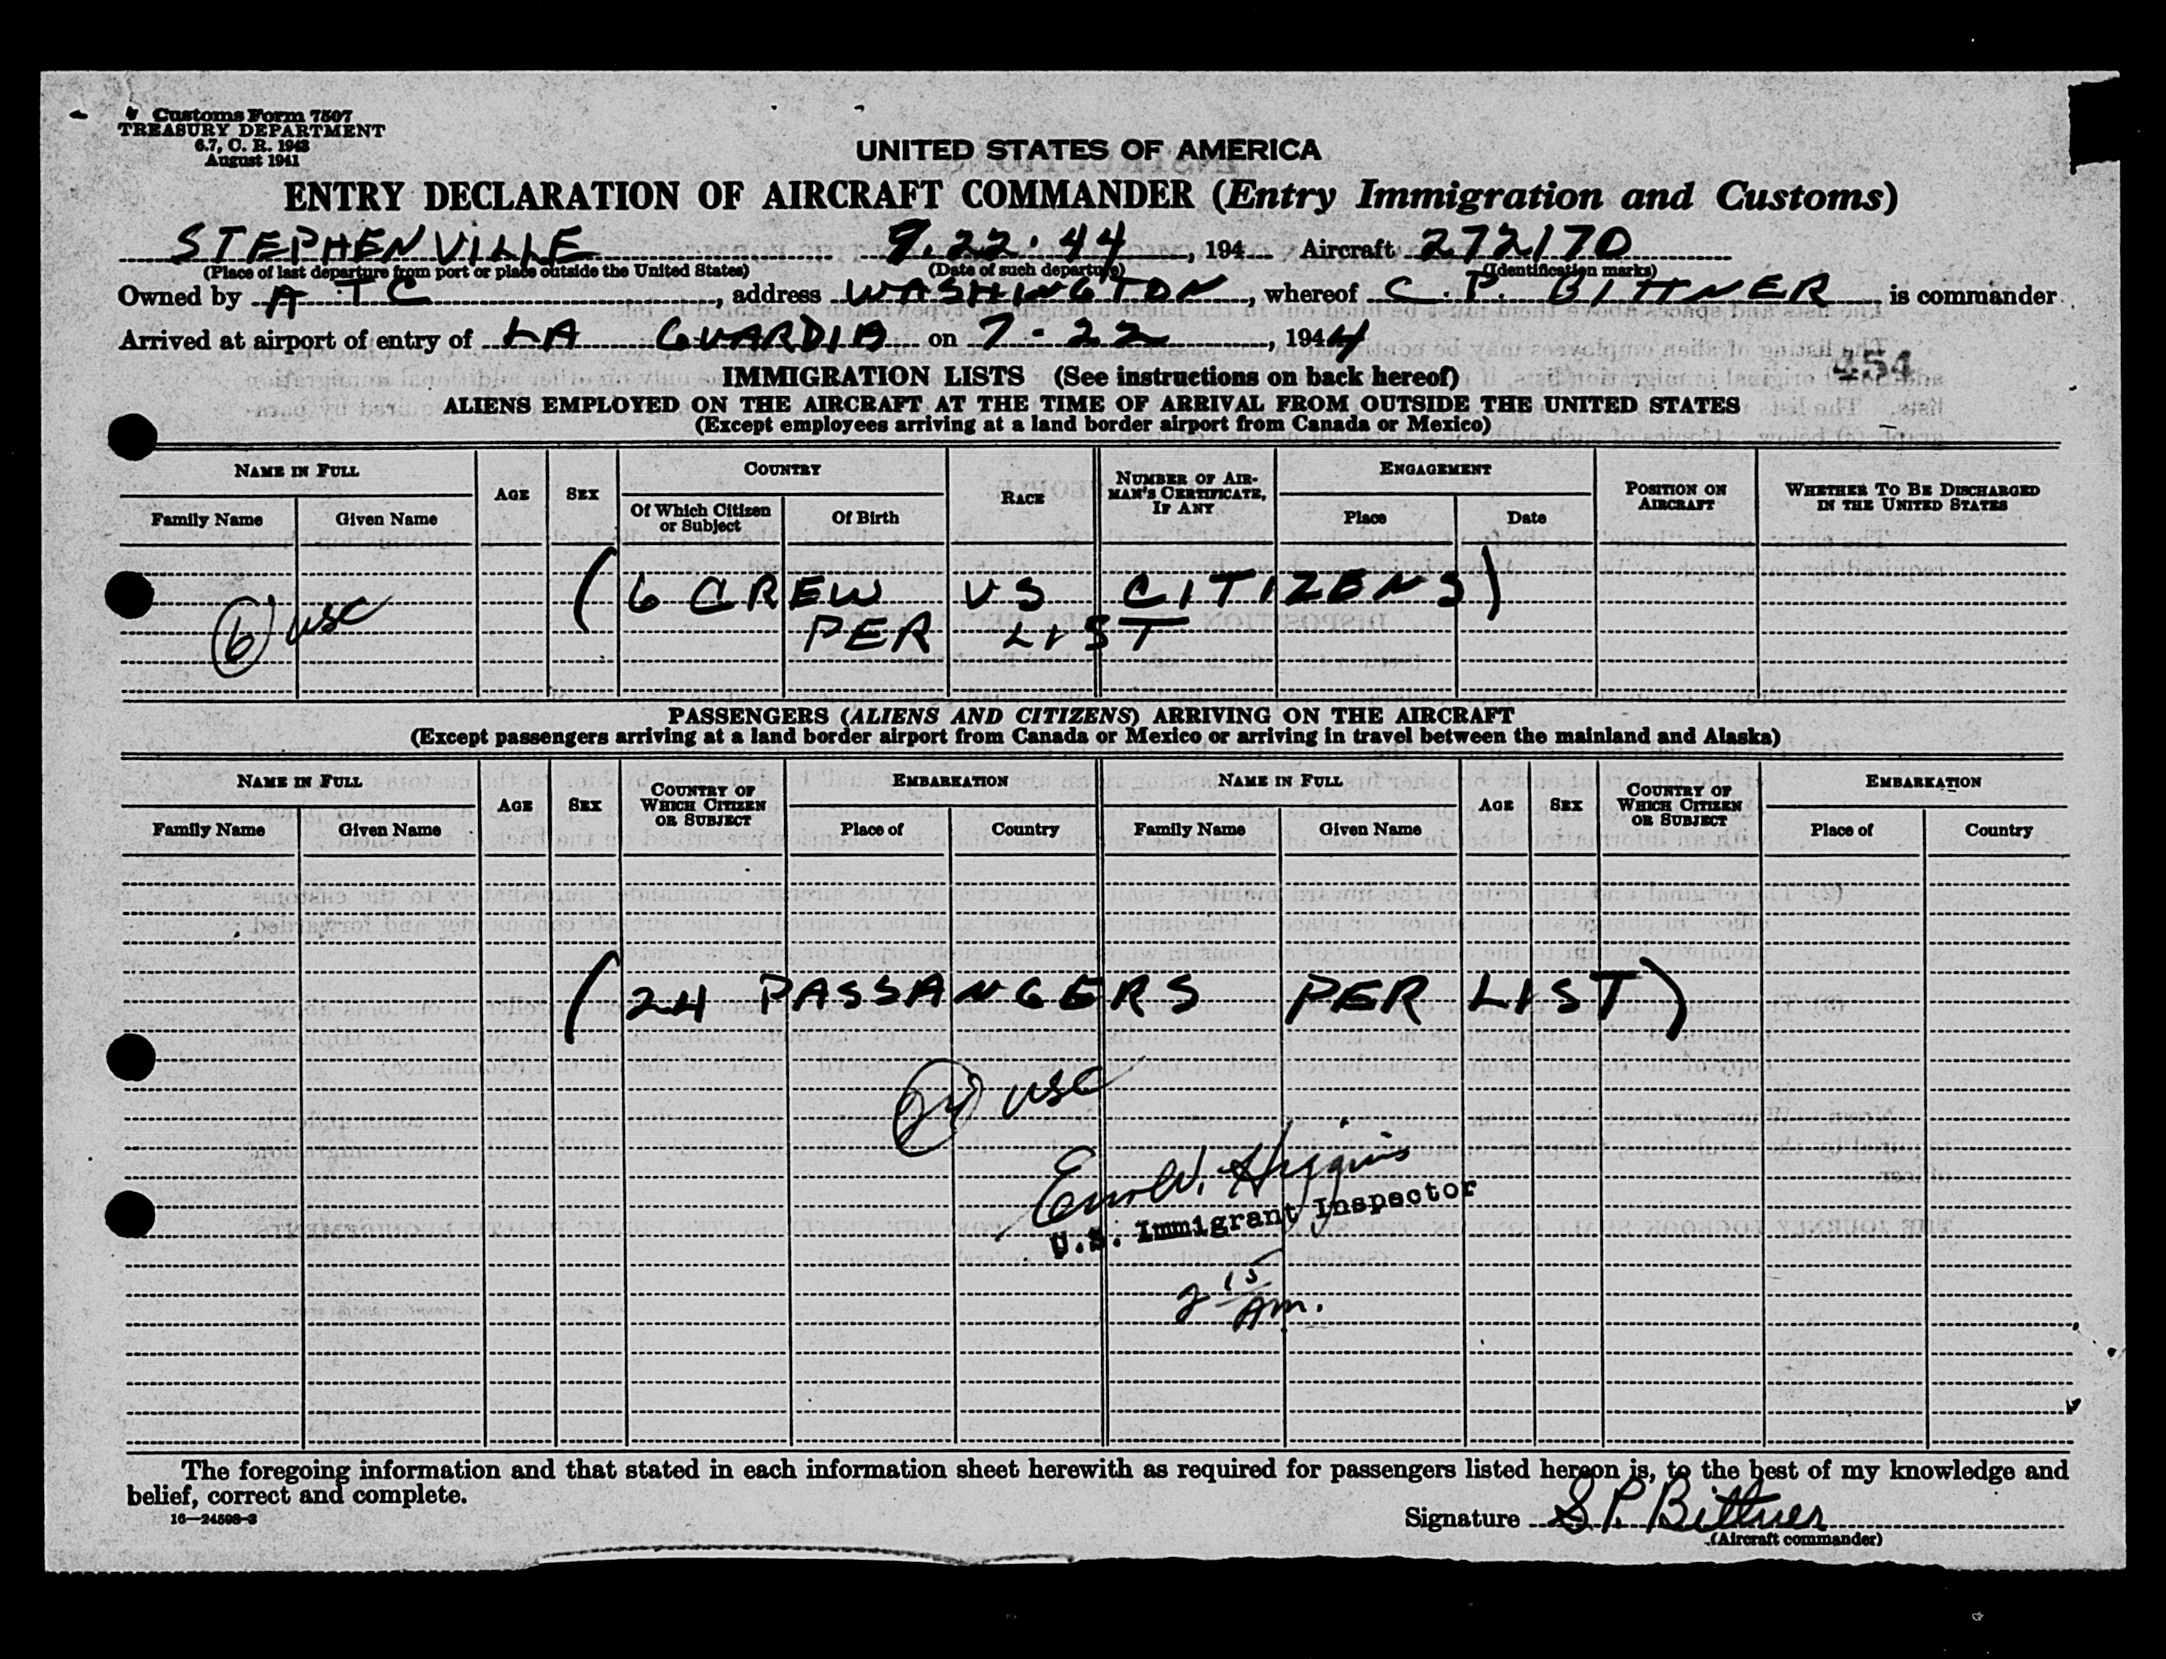 Customs Form 7507
TREASURY DEPARTMENT
6.7, C. R. 1943
August 1941
UNITED STATES OF AMERICA
ENTRY DECLARATION OF AIRCRAFT COMMANDER (Entry Immigration and Customs)
STEPHENVILLE 9.22.44, 194 Aircraft 272170
(Place of last departure from port or place outside the United States) (Date of such departure) (Identification marks)
Owned by A T C, address WASHINGTON, whereof C. P. BITTNER is commander
Arrived at airport of entry of LA GUARDIA on 7-22, 1944
454
IMMIGRATION LISTS (See instructions on back hereof)
ALIENS EMPLOYED ON THE AIRCRAFT AT THE TIME OF ARRIVAL FROM OUTSIDE THE UNITED STATES
(Except employees arriving at a land border airport from Canada or Mexico)
NAME IN FULL AGE SEX COUNTRY RACE NUMBER OF AIRMAN'S CERTIFICATE, IF ANY ENGAGEMENT POSITION ON AIRCRAFT WHETHER TO BE DISCHARGED IN THE UNITED STATES
Family Name Given Name Of Which Citizen or Subject Of Birth Place Date
(6 CREW US CITIZENS)
6 USC
PER LIST
PASSENGERS (ALIENS AND CITIZENS) ARRIVING ON THE AIRCRAFT
(Except passengers arriving at a land border airport from Canada or Mexico or arriving in travel between the mainland and Alaska)
NAME IN FULL AGE SEX COUNTRY OF WHICH CITIZEN OR SUBJECT EMBARKATION NAME IN FULL AGE SEX COUNTRY OF WHICH CITIZEN OR SUBJECT EMBARKATION
Family Name Given Name Place of Country Family Name Given Name Place of Country
(24 PASSANGERS PER LIST)
24 USC
W. Higgins
U.S. Immigrant Inspector
2 15 AM.
The foregoing information and that stated in each information sheet herewith as required for passengers listed hereon is, to the best of my knowledge and
belief, correct and complete.
16—24598-3
Signature S P. Bittner
(Aircraft commander)